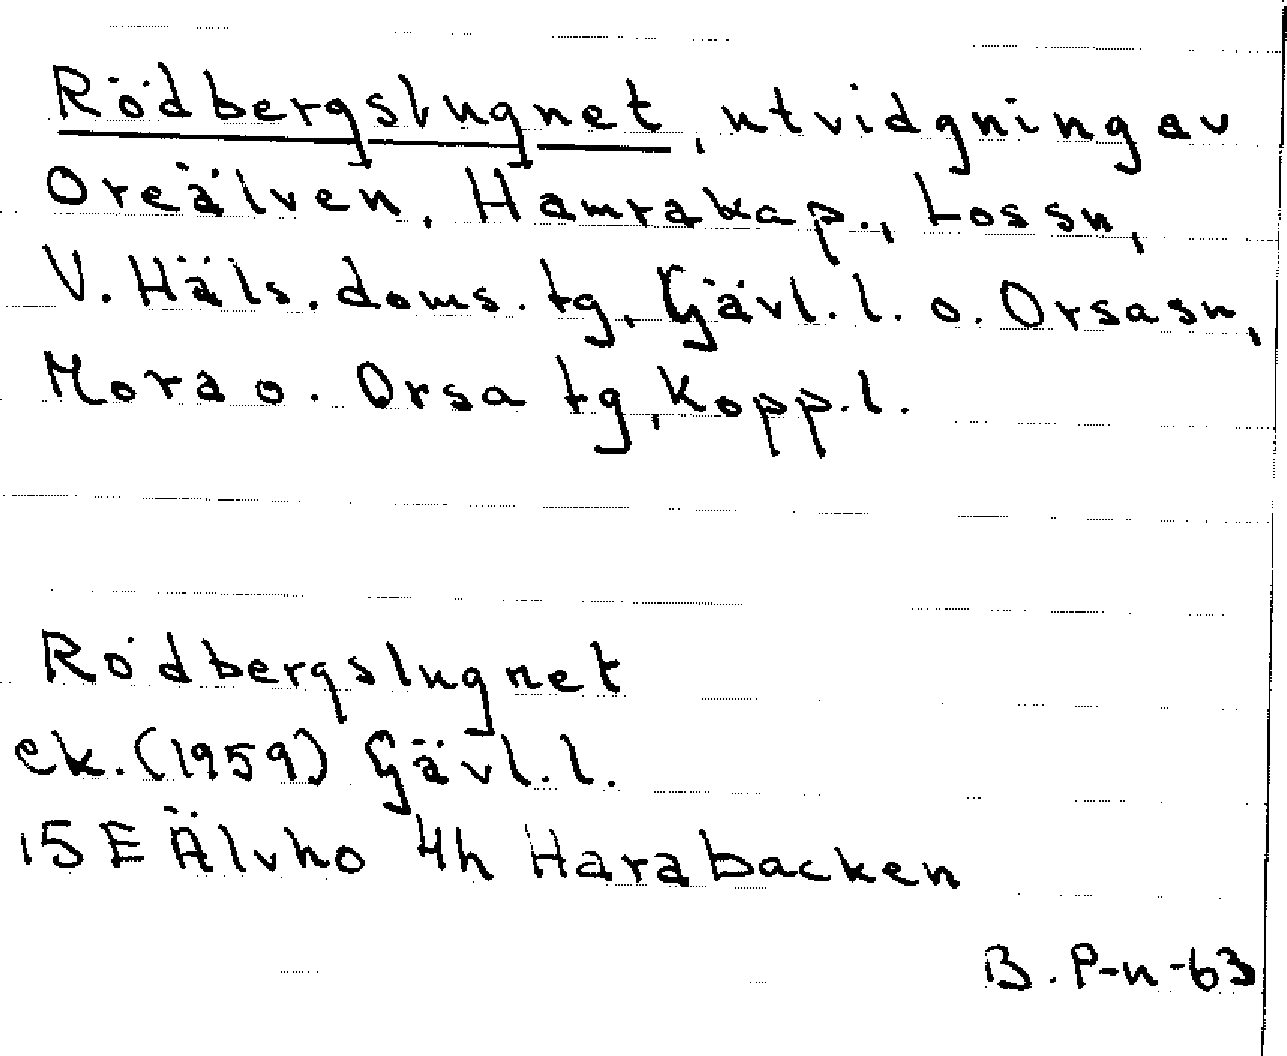 Rödbergslugnet, utvidgning av
Oreälven, Hamra kap., Los sn,
V. Häls. doms. tg, Gävl. l. o. Orsa sn,
Mora o. Orsa tg, Kopp. l.
Rödbergslugnet
ek. (1959) Gävl. l.
15 E Älvho 4h Harabacken
B. P-n -63